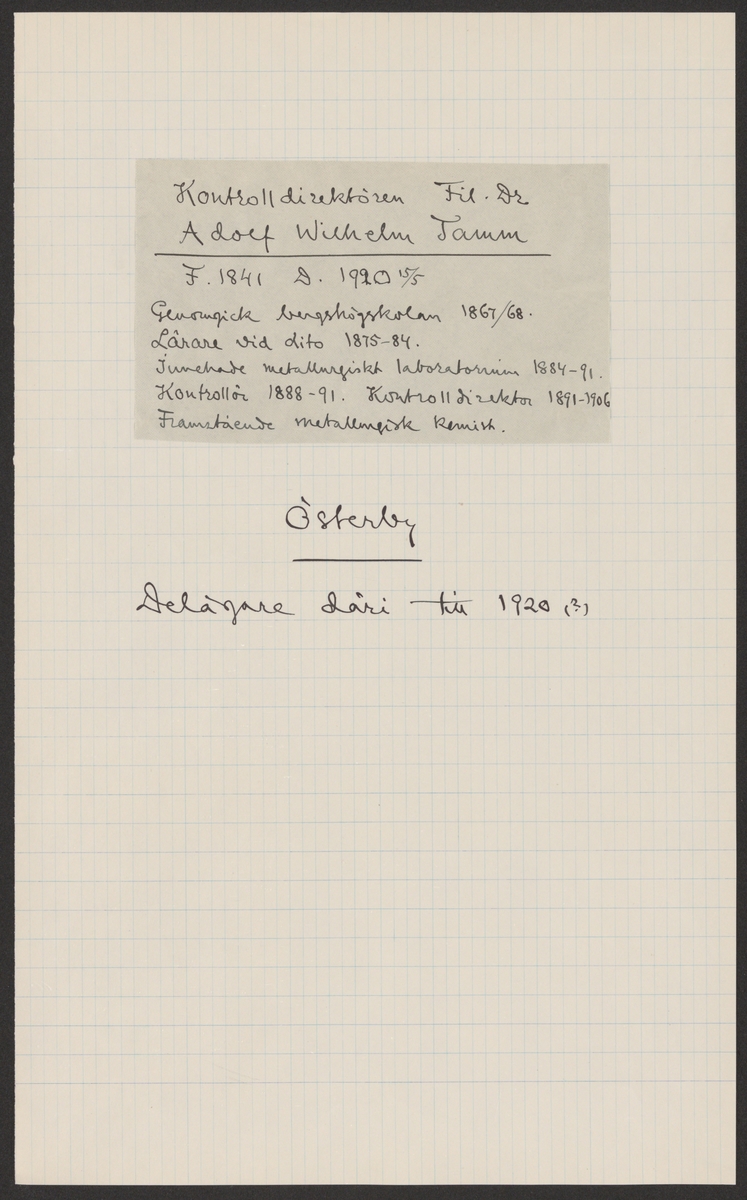 Kontrolldirektören Fil. Dr
Adolf Wilhelm Tamm
F. 1841 D. 1920 15/5
Genomgick bergshögskolan 1867/68.
Lärare vid dito 1875-84.
Innehade metallurgiskt laboratorium 1884-91.
Kontrollör 1888-91. Kontrolldirektör 1891-1906
Framstående metallurgisk kemist.
Österby
Delägare däri till 1920 (?)